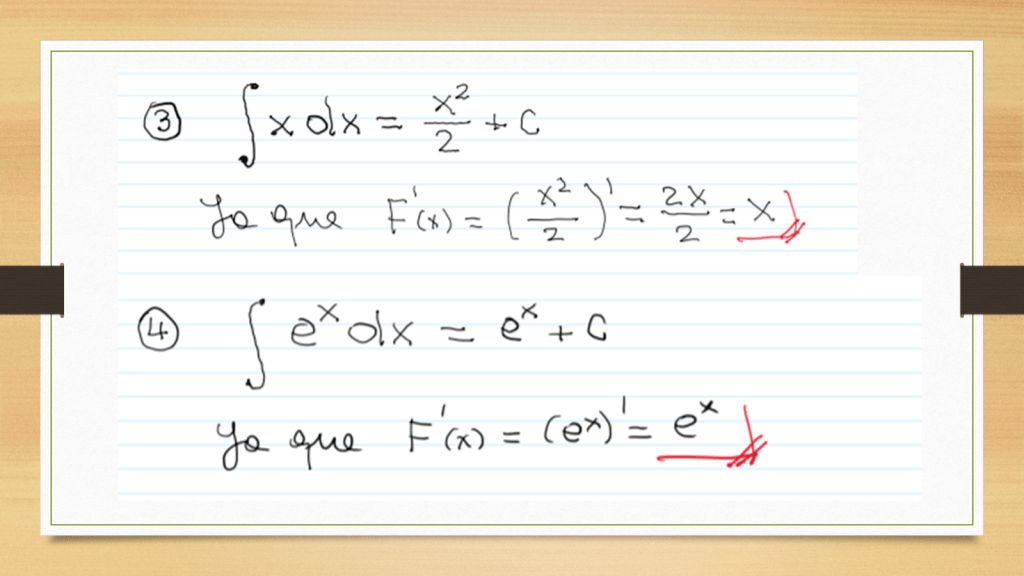 ③ ∫ x dx = x²/2 + C
Ya que F'(x) = (x²/2)' = 2x/2 = x
④ ∫ eˣ dx = eˣ + C
Ya que F'(x) = (eˣ)' = eˣ